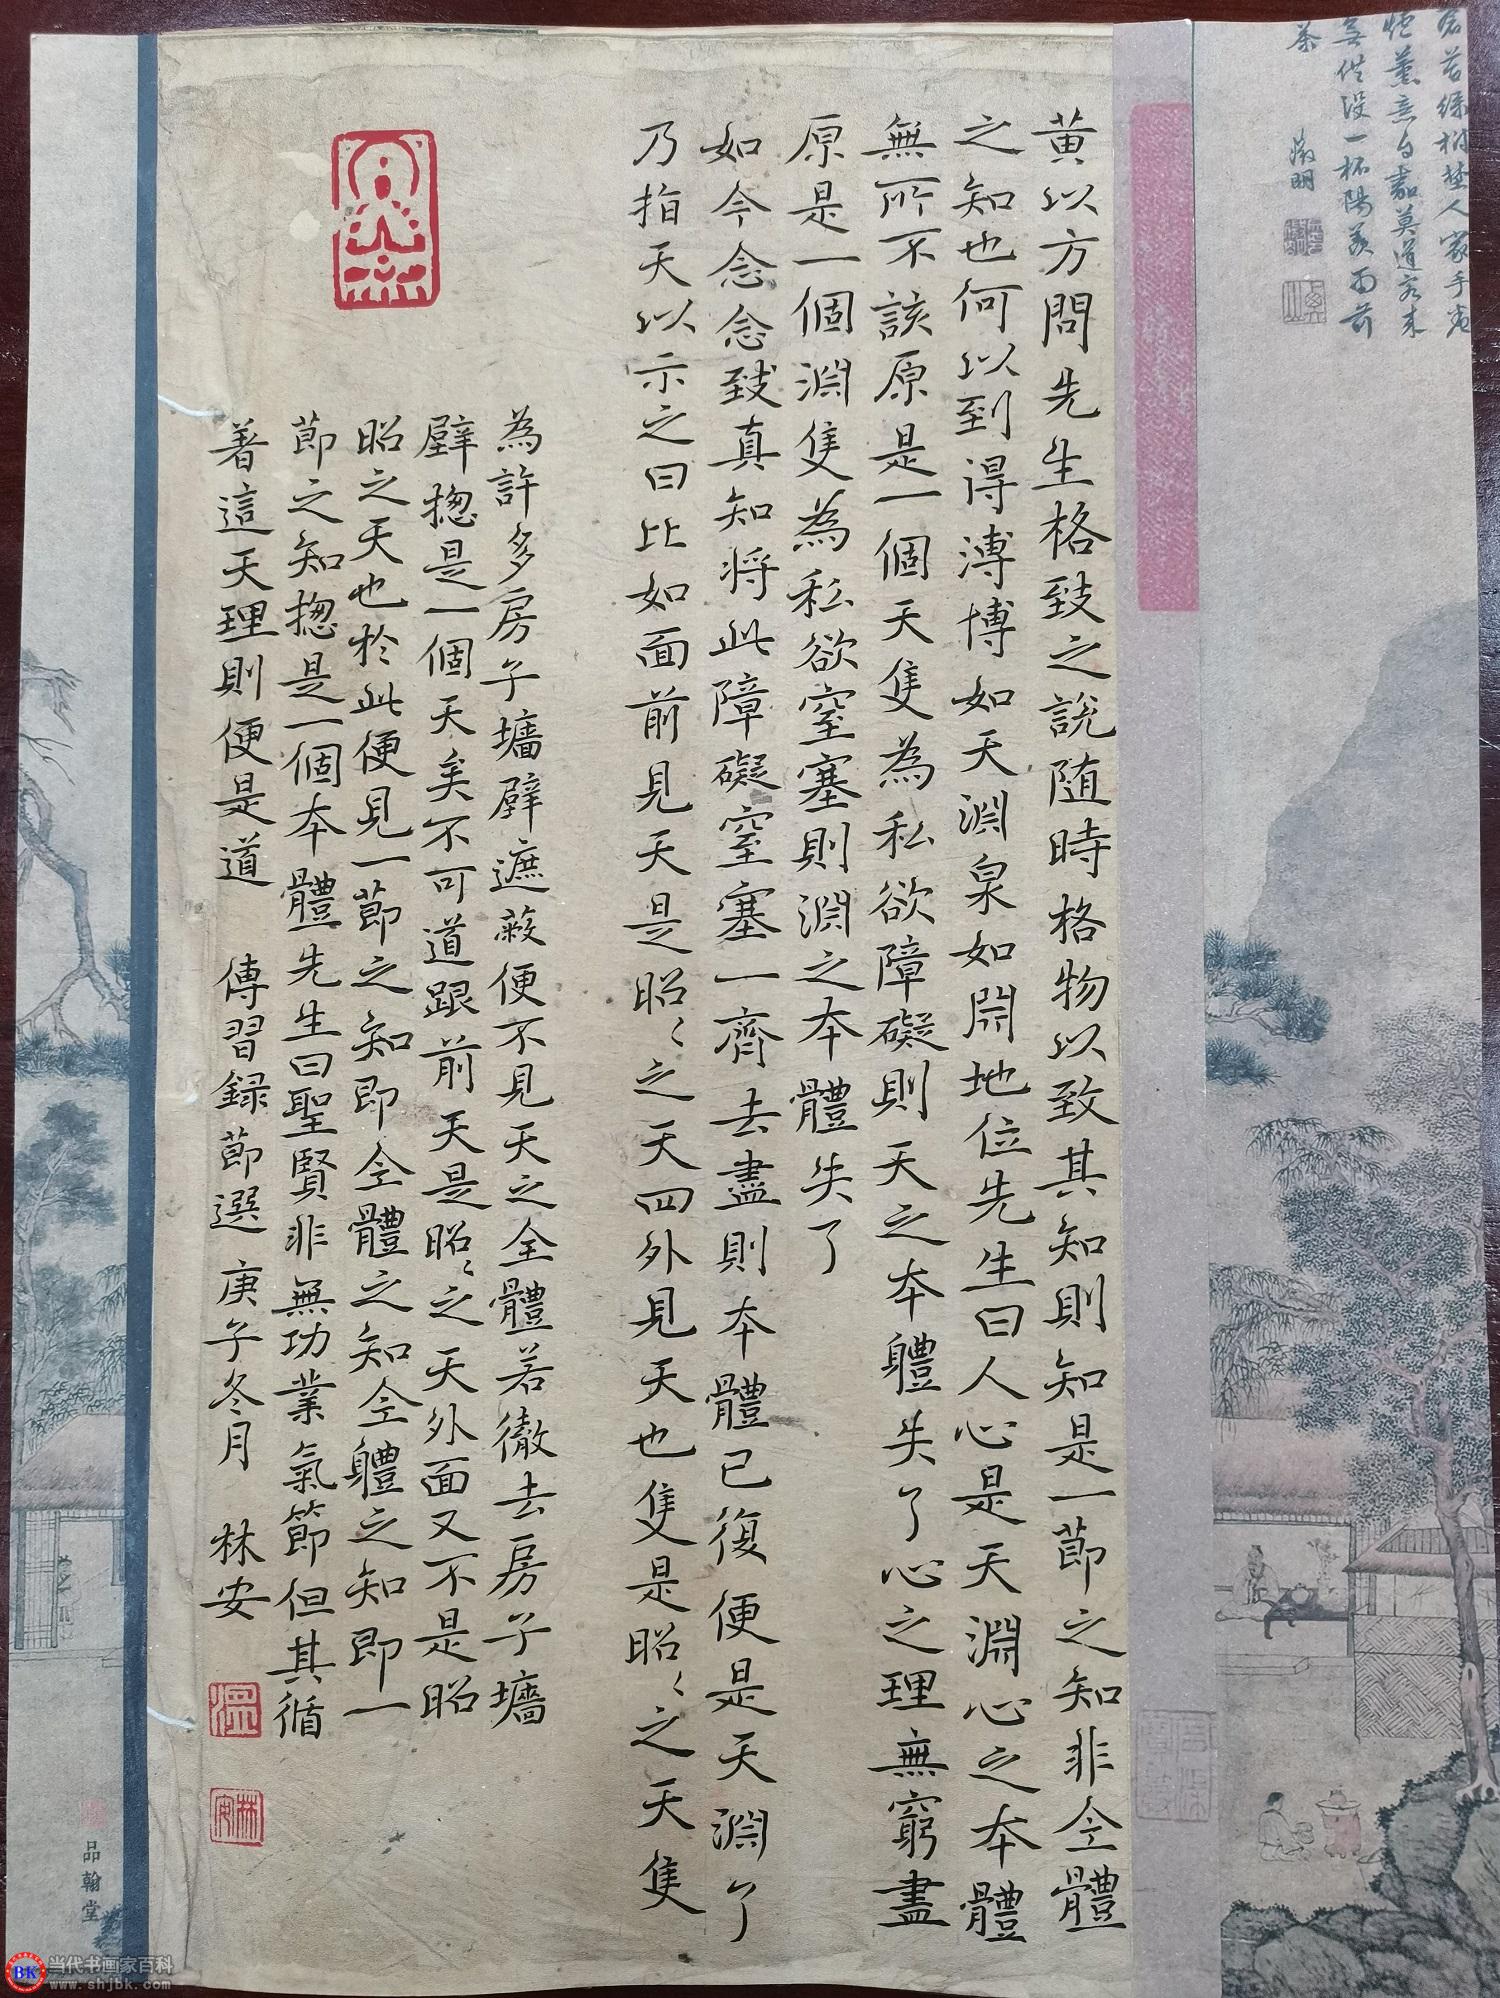 黄以方問先生格致之説随時格物以致其知則知是一節之知非全體
之知也何以到得溥博如天淵泉如淵地位先生曰人心是天淵心之本體
無所不該原是一個天隻為私欲障礙則天之本體失了心之理無窮盡
原是一個淵隻為私欲窒塞則淵之本體失了
如今念念致真知將此障礙窒塞一齊去盡則本體已復便是天淵了
乃指天以示之曰比如面前見天是昭々之天四外見天也隻是昭々之天隻
為許多房子墻壁遮蔽便不見天之全體若徹去房子墻
壁揔是一個天矣不可道跟前天是昭々之天外面又不是昭
昭之天也於此便見一節之知即全體之知全體之知即一
節之知揔是一個本體先生曰聖賢非無功業氣節但其循
着這天理則便是道 傳習録節選 庚子冬月 林安
林安
茶
徵明
品翰堂
BK 当代书画家百科
www.shjbk.com